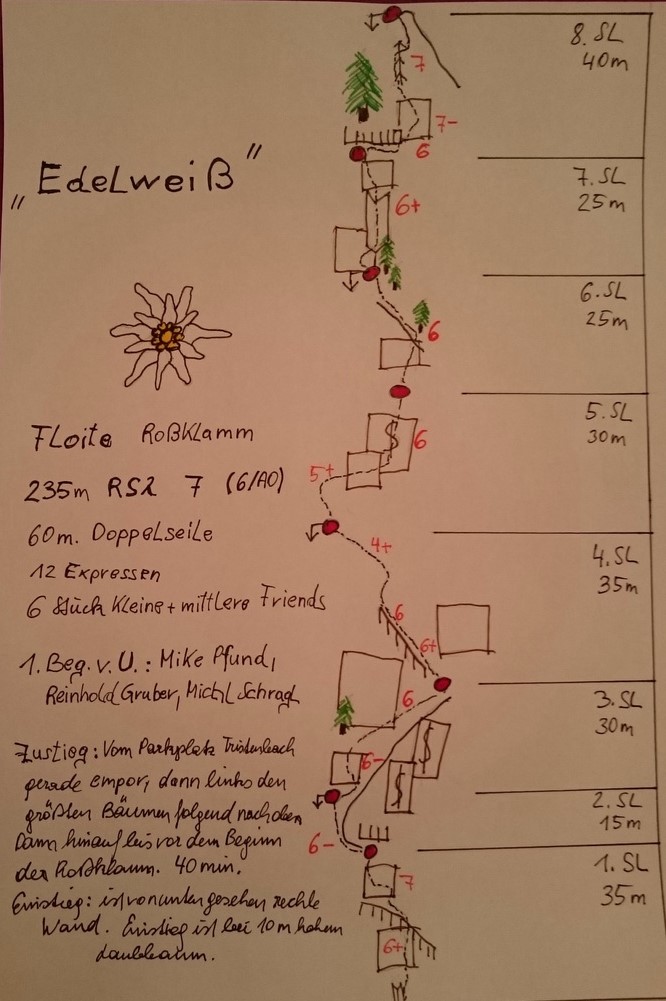 „Edelweiß"
Floite Roßklamm
235m RS2 7 (6/A0)
60m. Doppelseile
12 Expressen
6 Stück Kleine + mittlere Friends
1. Beg. v. U.: Mike Pfund,
Reinhold Gruber, Michl Schragl
Zustieg: Vom Parkplatz Tristenbach
gerade empor, dann links den
größten Bäumen folgend nach oben
Dann hinauf bis vor dem Beginn
der Roßklamm. 40 min.
Einstieg: ist von unten gesehen rechte
Wand. Einstieg ist bei 10m hohem
Laubbaum.
8. SL
40m
7
7-
6
7. SL
25m
6+
6. SL
25m
6
5. SL
30m
6
5+
4. SL
35m
4+
6
6+
3. SL
30m
6
6-
2. SL
15m
6-
1. SL
35m
7
6+